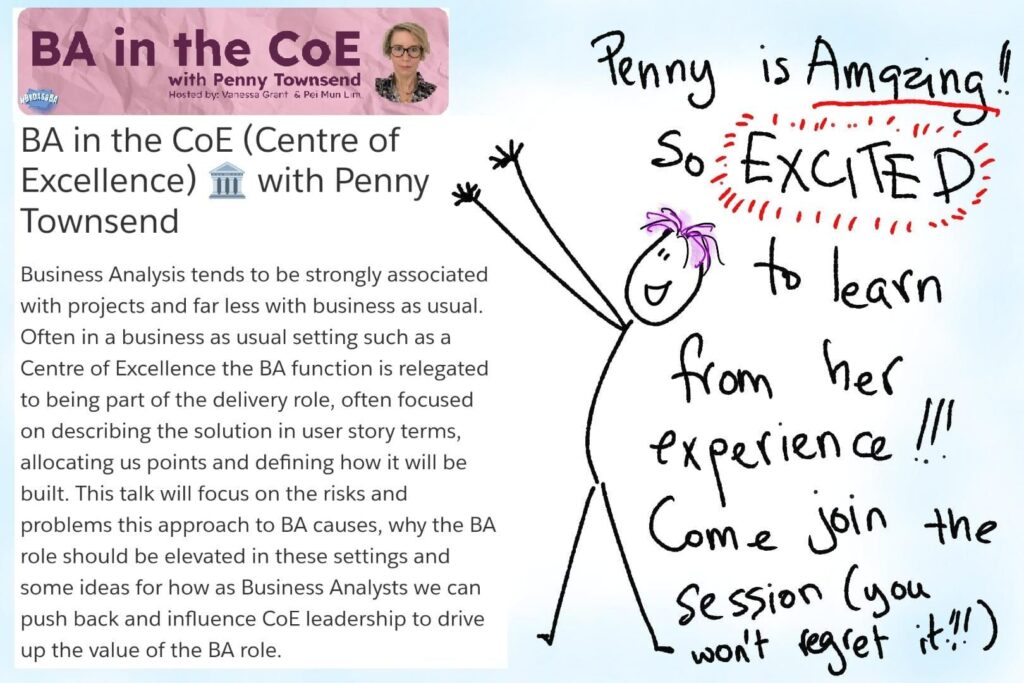 BA in the CoE
with Penny Townsend
Hosted by: Vanessa Grant & Pei Mun Lim
BA in the CoE (Centre of
Excellence) 🏛️ with Penny
Townsend
Business Analysis tends to be strongly associated
with projects and far less with business as usual.
Often in a business as usual setting such as a
Centre of Excellence the BA function is relegated
to being part of the delivery role, often focused
on describing the solution in user story terms,
allocating us points and defining how it will be
built. This talk will focus on the risks and
problems this approach to BA causes, why the BA
role should be elevated in these settings and
some ideas for how as Business Analysts we can
push back and influence CoE leadership to drive
up the value of the BA role.
Penny is Amazing!!
So EXCITED
to learn
from her
experience!!!
Come join the
session (you
won't regret it!!!)